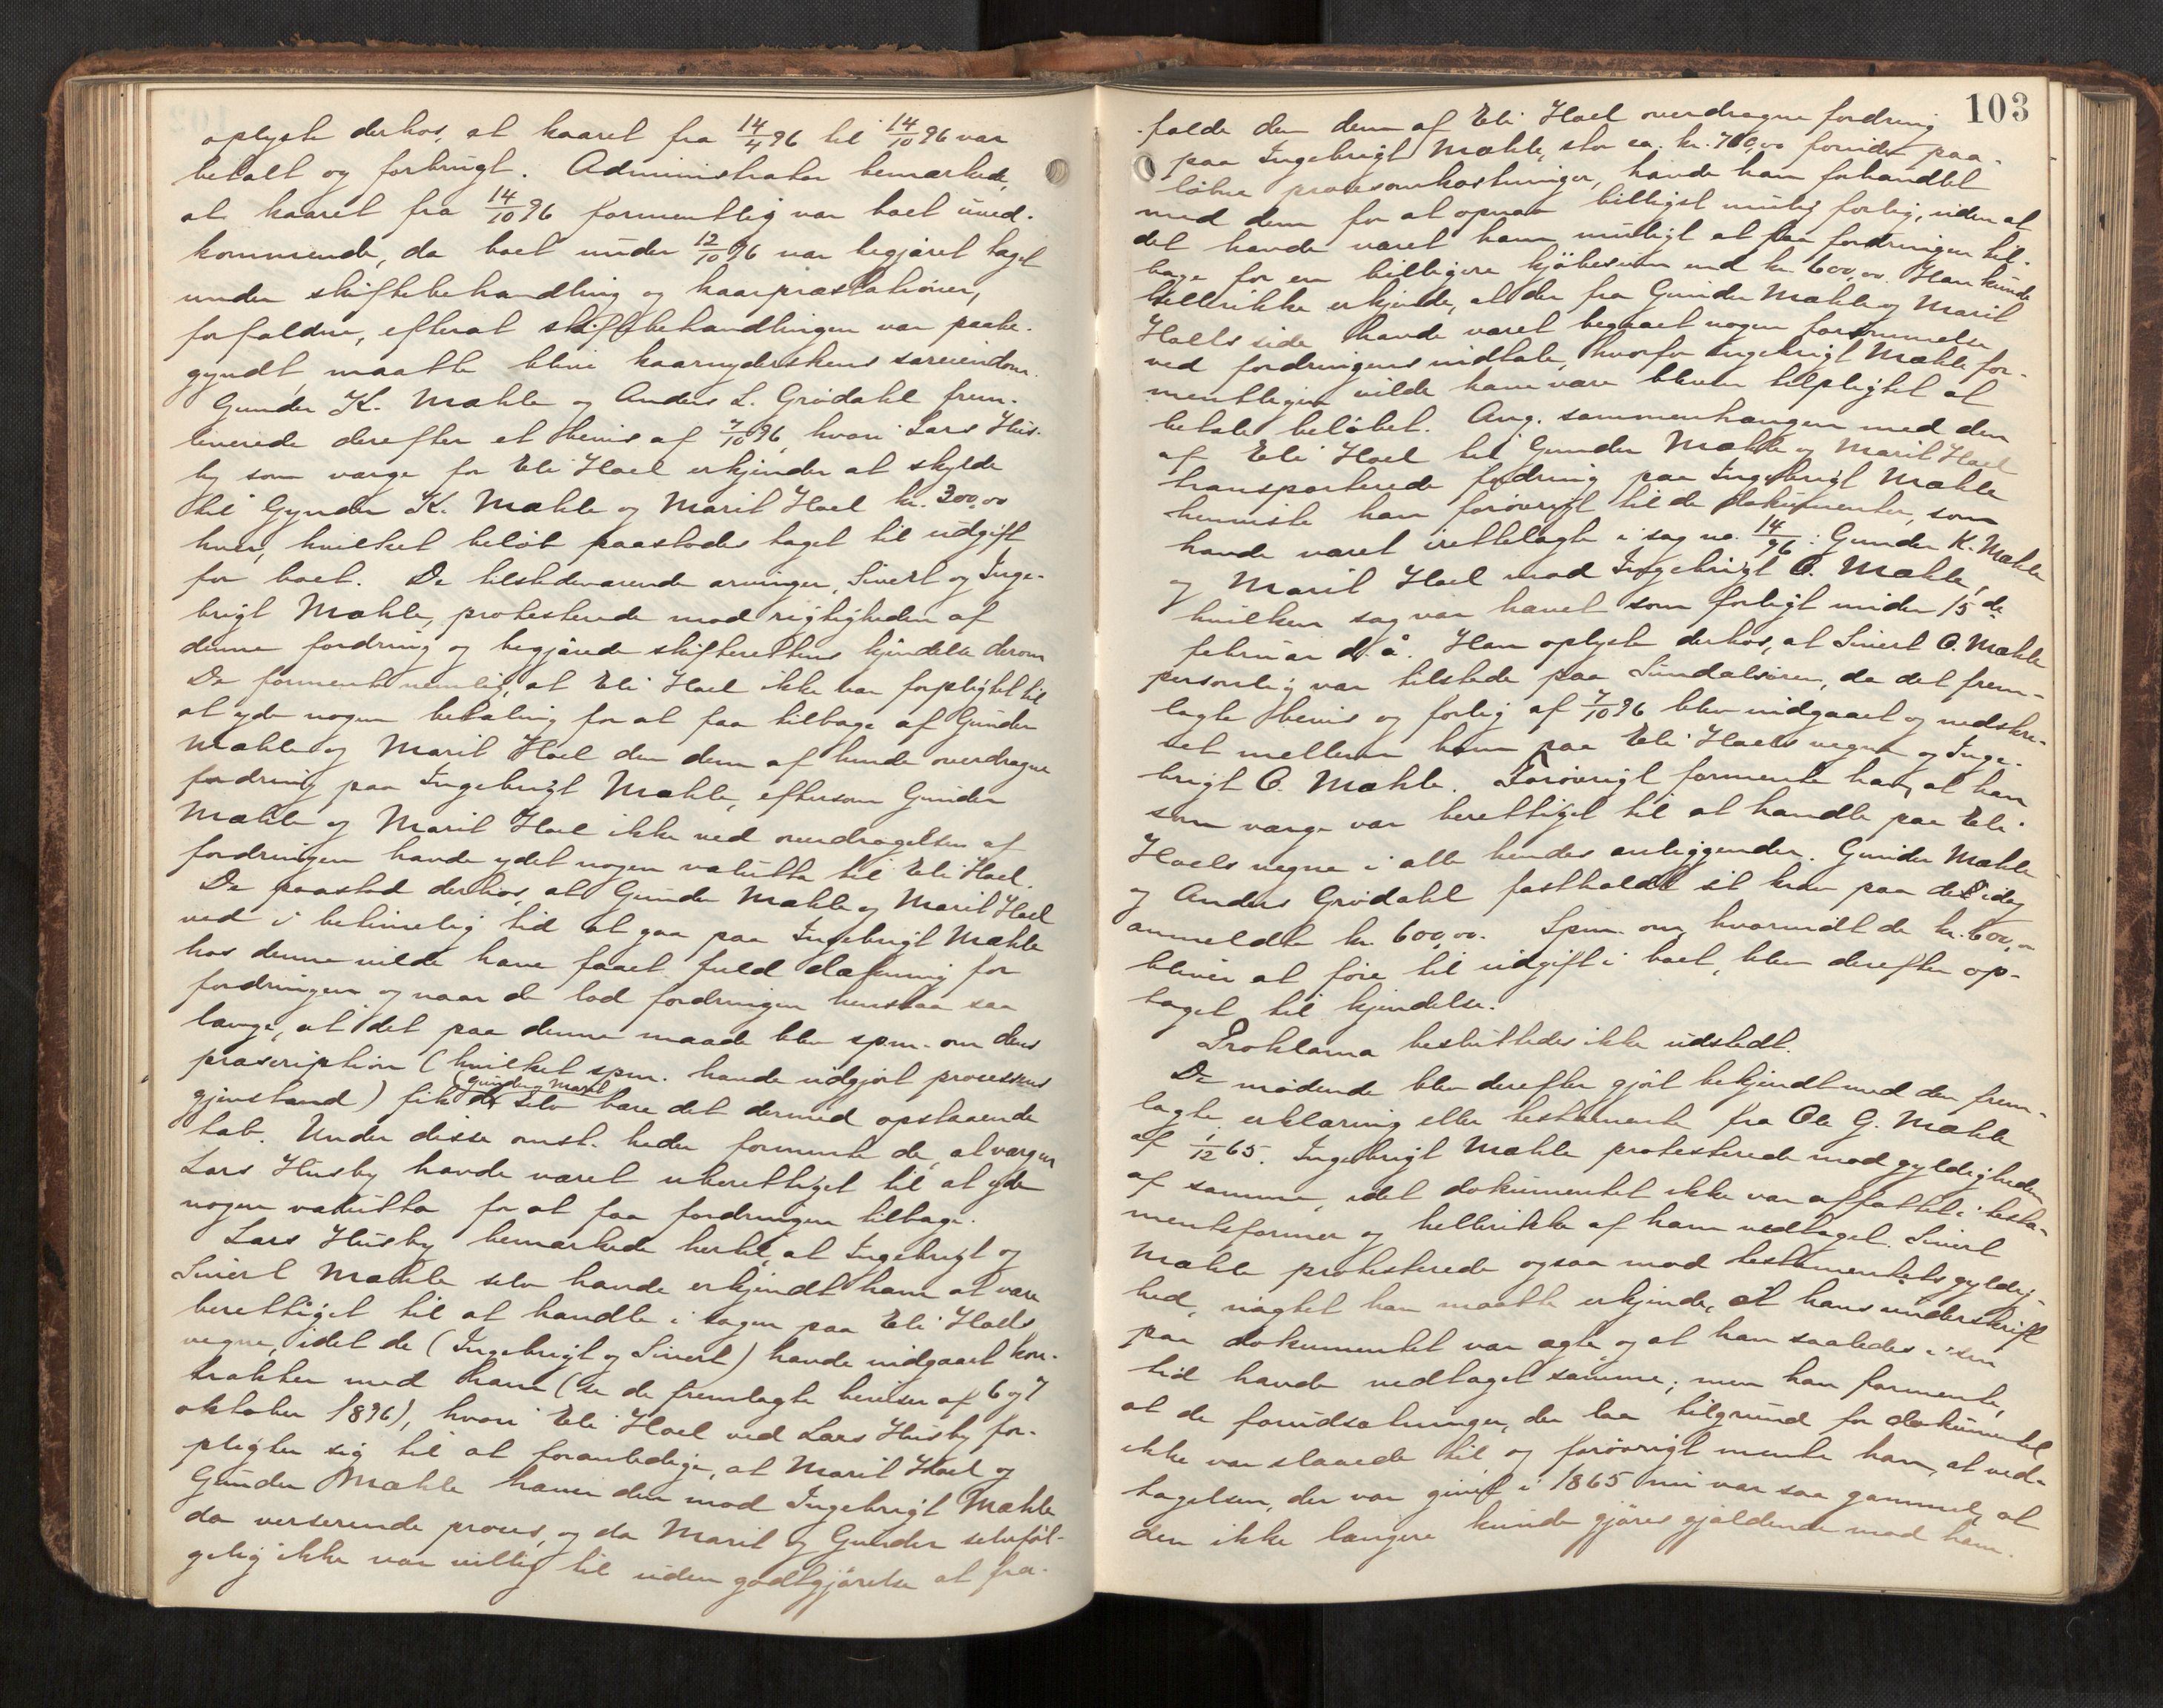 oplyste derhos, at kaaret fra 14/4 96 til 14/10 96 var
betalt og forbrugt. Administrator bemærkede,
at kaaret fra 14/10 96 formentlig var boet uved-
kommende, da boet under 12/10 96 var begjæret taget
under skiftebehandling og kaarpræstationer,
forfaldne, efterat skiftebehandlingen var paabe-
gyndt, maatte blive kaarnyderskens særeiendom.
Gunder K. Mæhle og Anders L. Grødahl frem-
leverede derefter et bevis af 7/10 96, hvori Lars Hus-
by som værge for Eli Hoel erkjender at skylde
til Gunder K. Mæhle og Marit Hoel kr. 300,00
hver, hvilket beløb paastodes taget til udgift
for boet. De tilstedeværende arvinger, Sivert og Inge-
brigt Mæhle, protesterede mod rigtigheden af
denne fordring og begjærede skifterettens kjendelse derom
De formente nemlig, at Eli Hoel ikke var forpligtet til
at yde nogen betaling for at faa tilbage af Gunder
Mæhle og Marit Hoel den dem af hende overdragne
fordring paa Ingebrigt Mæhle, eftersom Gunder
Mæhle og Marit Hoel ikke ved overdragelsen af
fordringen havde ydet nogen valutta til Eli Hoel.
De paastod derhos, at Gunder Mæhle og Marit Hoel
ved i betimelig tid at gaa paa Ingebrigt Mæhle
hos denne vilde have faaet fuld dækning for
fordringen og naar de lod fordringen henstaa saa
længe, at det paa denne maade blev spm. om dens
præscription (hvilket spm. havde udgjort processens
(Gunder og Marit)
gjenstand) fik de selv bære det dermed opstaaende
tab. Under disse omst.heder formente de, at værgen
Lars Husby havde været uberettiget til at yde
nogen valutta for at faa fordringen tilbage.
Lars Husby bemærkede hertil, at Ingebrigt og
Sivert Mæhle selv havde erkjendt ham at være
berettiget til at handle i sagen paa Eli Hoels
vegne, idet de (Ingebrigt og Sivert) havde indgaaet kon-
trakter med ham (se de fremlagte beviser af 6 og 7
oktober 1896), hvori Eli Hoel ved Lars Husby for-
pligter sig til at foranledige, at Marit Hoel og
Gunder Mæhle hæver den mod Ingebrigt Mæhle
da verserende proces, og da Marit og Gunder selvføl-
gelig ikke var villig til uden godtgjørelse at fra-
103
falde den dem af Eli Hoel overdragne fordring
paa Ingebrigt Mæhle, stor ca. kr. 700,00 foruden paa-
løbne procesomkostninger, havde han forhandlet
med dem for at opnaa billigst mulig forlig, uden at
det havde været ham muligt at faa fordringen til-
bage for en billigere kjøbesum end kr. 600,00. Han kunde
hellerikke erkjende, at der fra Gunder Mæhle og Marit
Hoels side havde været begaaet nogen forsømmelse
ved fordringens indtale, hvorfor Ingebrigt Mæhle for-
mentligen vilde have være bleven tilpligtet at
betale beløbet. Ang. sammenhængen med den
af Eli Hoel til Gunder Mæhle og Marit Hoel
transporterede fordring paa Ingebrigt Mæhle
henviste han forøvrigt til de dokumenter, som
havde været irettelagte i sag no. 14/96: Gunder K. Mæhle
og Marit Hoel mod Ingebrigt O. Mæhle,
hvilken sag var hævet som forligt under 15de
februar d. å. Han oplyste derhos, at Sivert O. Mæhle
personlig var tilstede paa Sundalsøren, da det frem-
lagte bevis og forlig af 7/10 96 blev indgaaet og nedskre-
vet mellem ham paa Eli Hoels vegne og Inge-
brigt O. Mæhle. Forøvrigt formente han, at han
som værge var berettiget til at handle paa Eli
Hoels vegne i alle hendes anliggender. Gunder Mæhle
og Anders Grødahl fastholdt sit krav paa de idag
anmeldte kr. 600,00. Spm. om, hvorvidt de kr. 600,00
bliver at føre til udgift i boet, blev derefter op-
taget til kjendelse.
Proklama besluttedes ikke udstedt.
De mødende blev derefter gjort bekjendt med den frem-
lagte erklæring eller testamente fra Ole G. Mæhle
af 1/12 65. Ingebrigt Mæhle protesterede mod gyldigheden
af samme, idet dokumentet ikke var affattet i testa-
mentsformer og hellerikke af ham vedtaget. Sivert
Mæhle protesterede ogsaa mod testamentets gyldig-
hed, uagtet han maatte erkjende, at hans underskrift
paa dokumentet var ægte, og at han saaledes i sin
tid havde vedtaget samme; men han formente,
at de forudsætninger, der laa tilgrund for dokumentet
ikke var slaaede til, og forøvrigt mente han, at ved-
tagelsen, der var givet i 1865 nu var saa gammel, at
den ikke længere kunde gjøres gjældende mod ham.